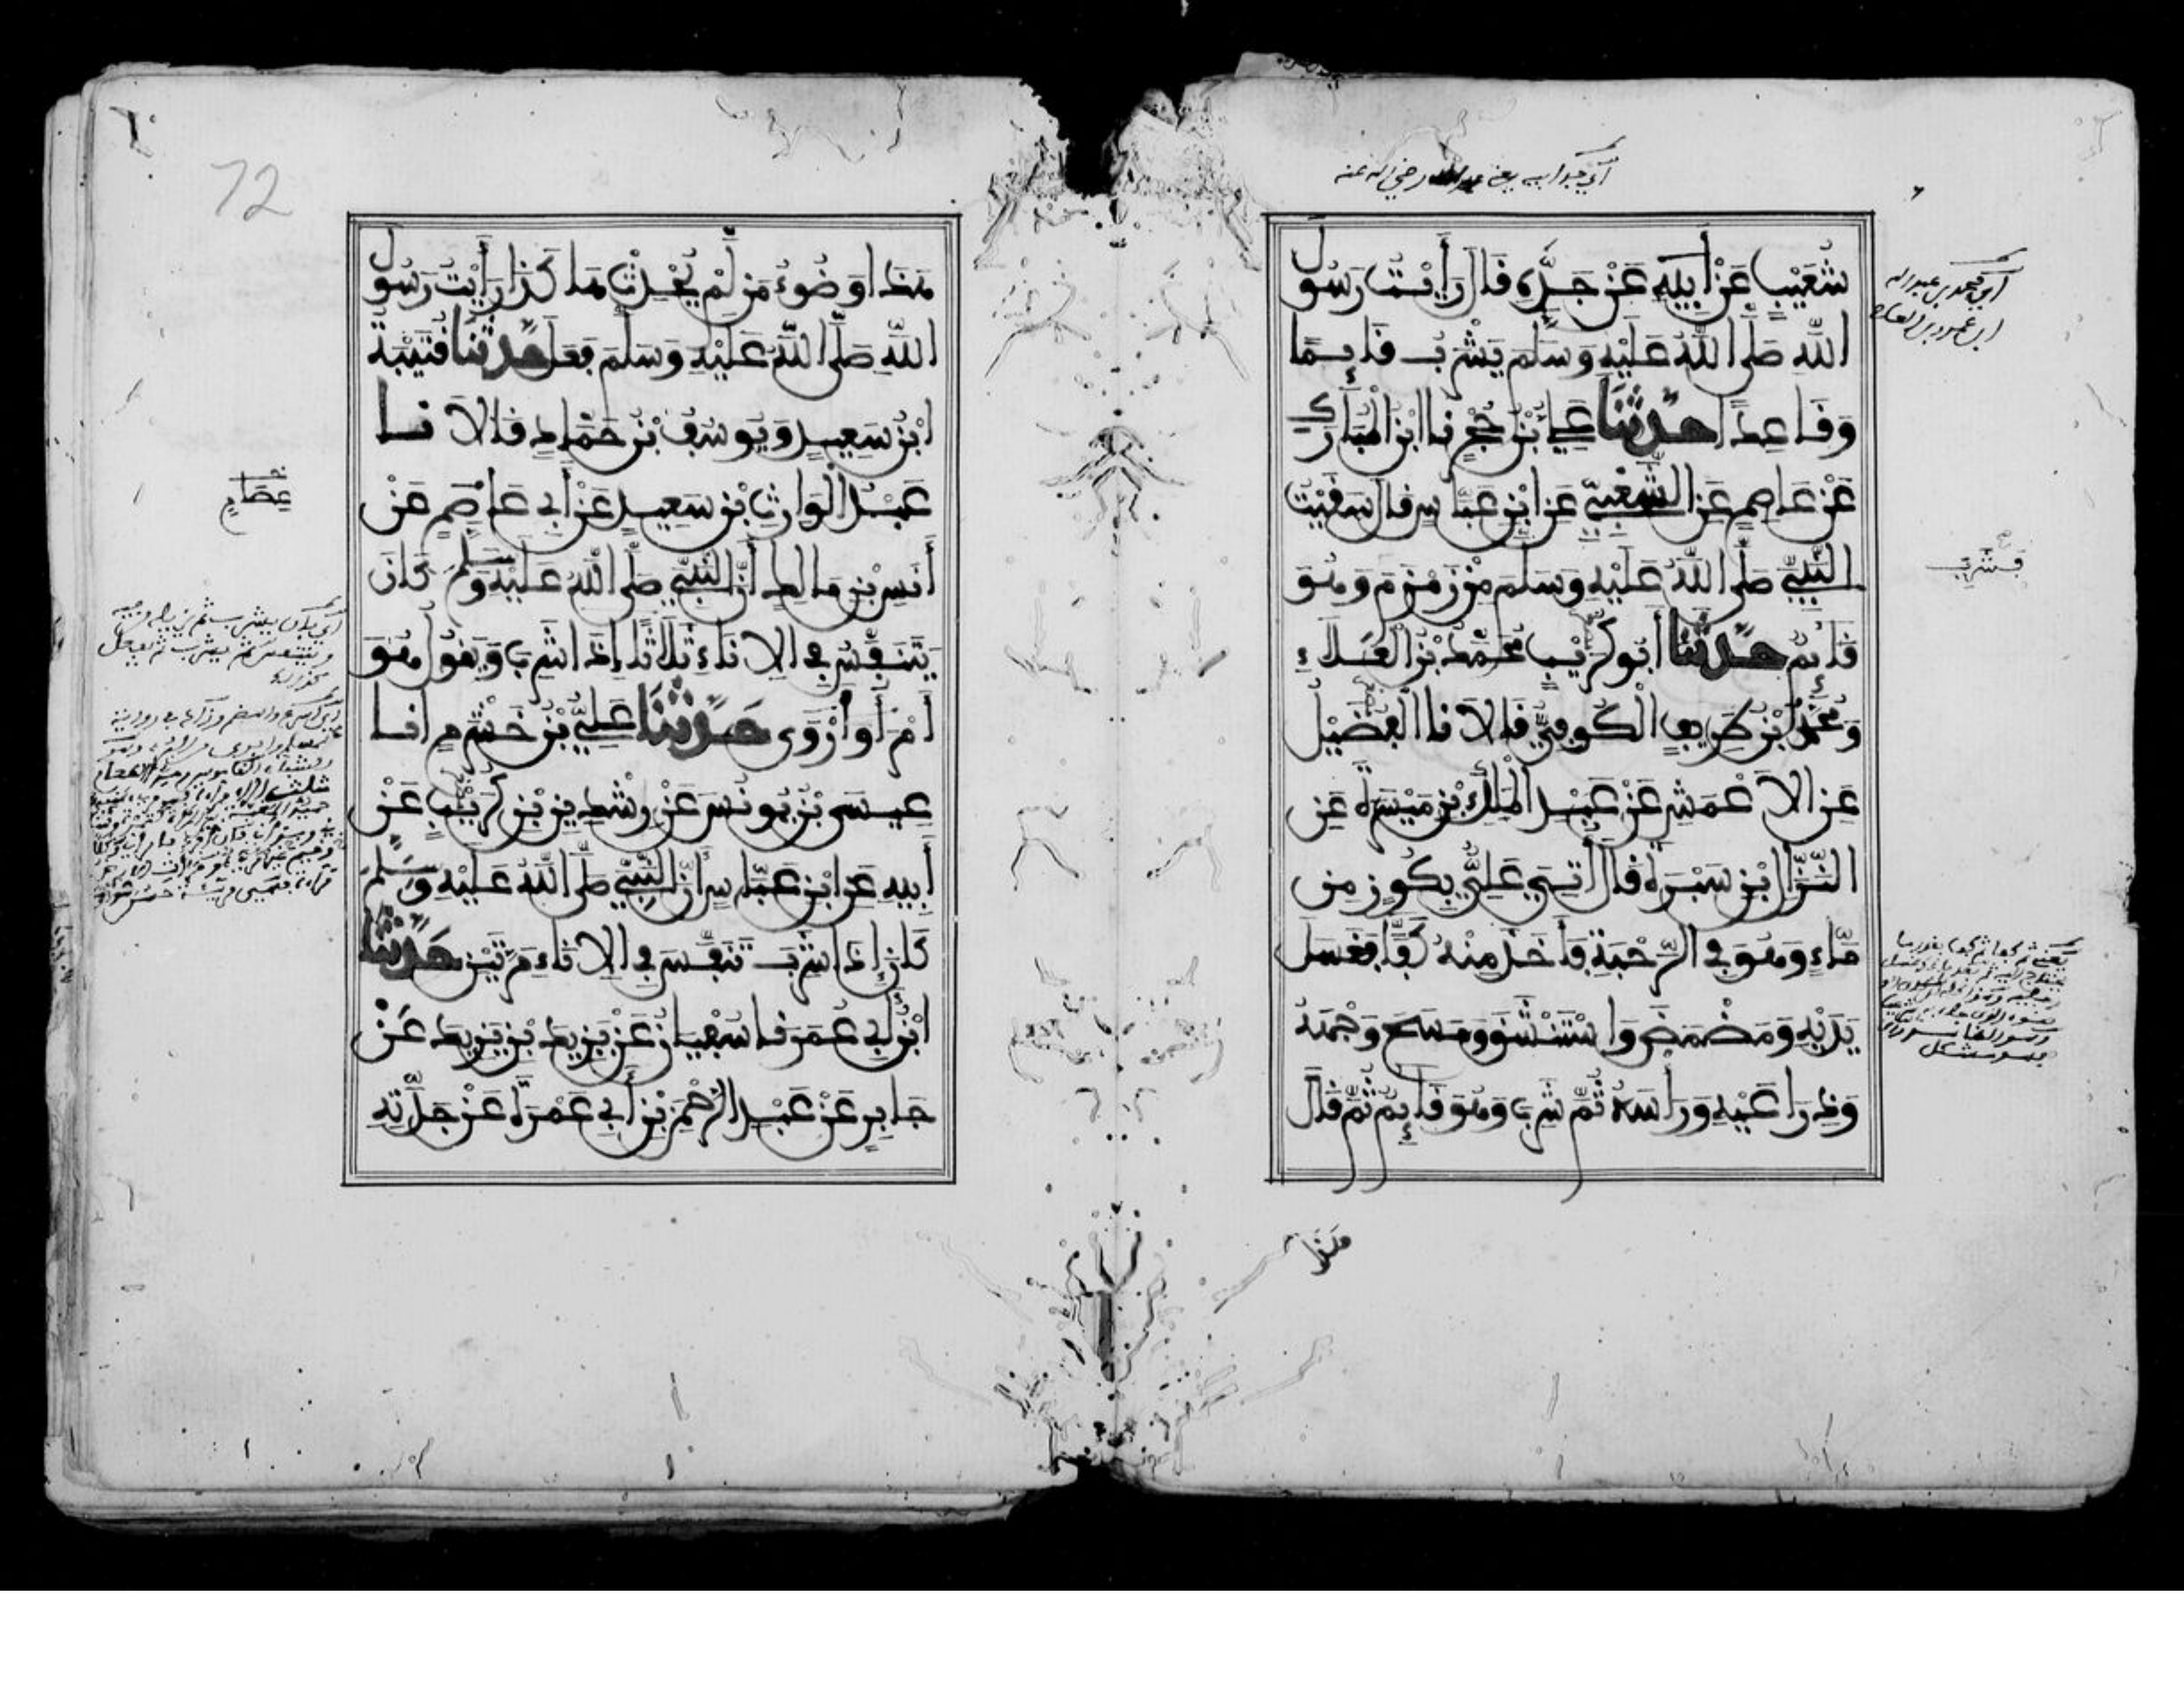 أي جد أبيه يعني عبد الله رضي الله عنه
شُعَيْبٍ عَنْ أَبِيهِ عَنْ جَدِّهِ قَالَ رَأَيْتُ رَسُولَ
اللَّهِ صَلَّى اللَّهُ عَلَيْهِ وَسَلَّمَ يَشْرَبُ قَائِمًا
وَقَاعِدًا حَدَّثَنَا عَلِيُّ بْنُ حُجْرٍ نَا ابْنُ الْمُبَارَكِ
عَنْ عَاصِمٍ عَنِ الشَّعْبِيِّ عَنِ ابْنِ عَبَّاسٍ قَالَ سَقَيْتُ
النَّبِيَّ صَلَّى اللَّهُ عَلَيْهِ وَسَلَّمَ مِنْ زَمْزَمَ وَهُوَ
قَائِمٌ حَدَّثَنَا أَبُو كُرَيْبٍ مُحَمَّدُ بْنُ الْعَلَاءِ
وَمُحَمَّدُ بْنُ طَرِيفٍ الْكُوفِيُّ قَالَا نَا الْفُضَيْلُ
عَنِ الْأَعْمَشِ عَنْ عَبْدِ الْمَلِكِ بْنِ مَيْسَرَةَ عَنِ
النَّزَّالِ بْنِ سَبْرَةَ قَالَ أُتِيَ عَلِيٌّ بِكُوزٍ مِنْ
مَاءٍ وَهُوَ فِي الرَّحْبَةِ فَأَخَذَ مِنْهُ كَفًّا فَغَسَلَ
يَدَيْهِ وَمَضْمَضَ وَاسْتَنْشَقَ وَمَسَحَ وَجْهَهُ
وَذِرَاعَيْهِ وَرَأْسَهُ ثُمَّ شَرِبَ وَهُوَ قَائِمٌ ثُمَّ قَالَ
هَذَا
أي محمد بن عبد الله
ابن عمرو بن العاص
فشرب
72
هَذَا وُضُوءُ مَنْ لَمْ يُحْدِثْ هَاكَذَا رَأَيْتُ رَسُولَ
اللَّهِ صَلَّى اللَّهُ عَلَيْهِ وَسَلَّمَ فَعَلَ حَدَّثَنَا قُتَيْبَةُ
ابْنُ سَعِيدٍ وَيُوسُفُ بْنُ حَمَّادٍ قَالَا نَا
عَبْدُ الْوَارِثِ بْنُ سَعِيدٍ عَنْ أَبِي عَاصِمٍ عَنْ
أَنَسِ بْنِ مَالِكٍ أَنَّ النَّبِيَّ صَلَّى اللَّهُ عَلَيْهِ وَسَلَّمَ كَانَ
يَتَنَفَّسُ فِي الْإِنَاءِ ثَلَاثًا إِذَا شَرِبَ وَيَقُولُ هُوَ
أَمْرَأُ وَأَرْوَى حَدَّثَنَا عَلِيُّ بْنُ خَشْرَمٍ انَا
عِيسَى بْنُ يُونُسَ عَنْ رِشْدِينِ بْنِ كُرَيْبٍ عَنْ
أَبِيهِ عَنِ ابْنِ عَبَّاسٍ أَنَّ النَّبِيَّ صَلَّى اللَّهُ عَلَيْهِ وَسَلَّمَ
كَانَ إِذَا شَرِبَ تَنَفَّسَ فِي الْإِنَاءِ مَرَّتَيْنِ حَدَّثَنَا
ابْنُ أَبِي عُمَرَ نَا سُفْيَانُ عَنْ يَزِيدَ بْنِ يَزِيدَ عَنْ
جَابِرٍ عَنْ عَبْدِ الرَّحْمَنِ بْنِ أَبِي عَمْرَةَ عَنْ جَدَّتِهِ
عصام